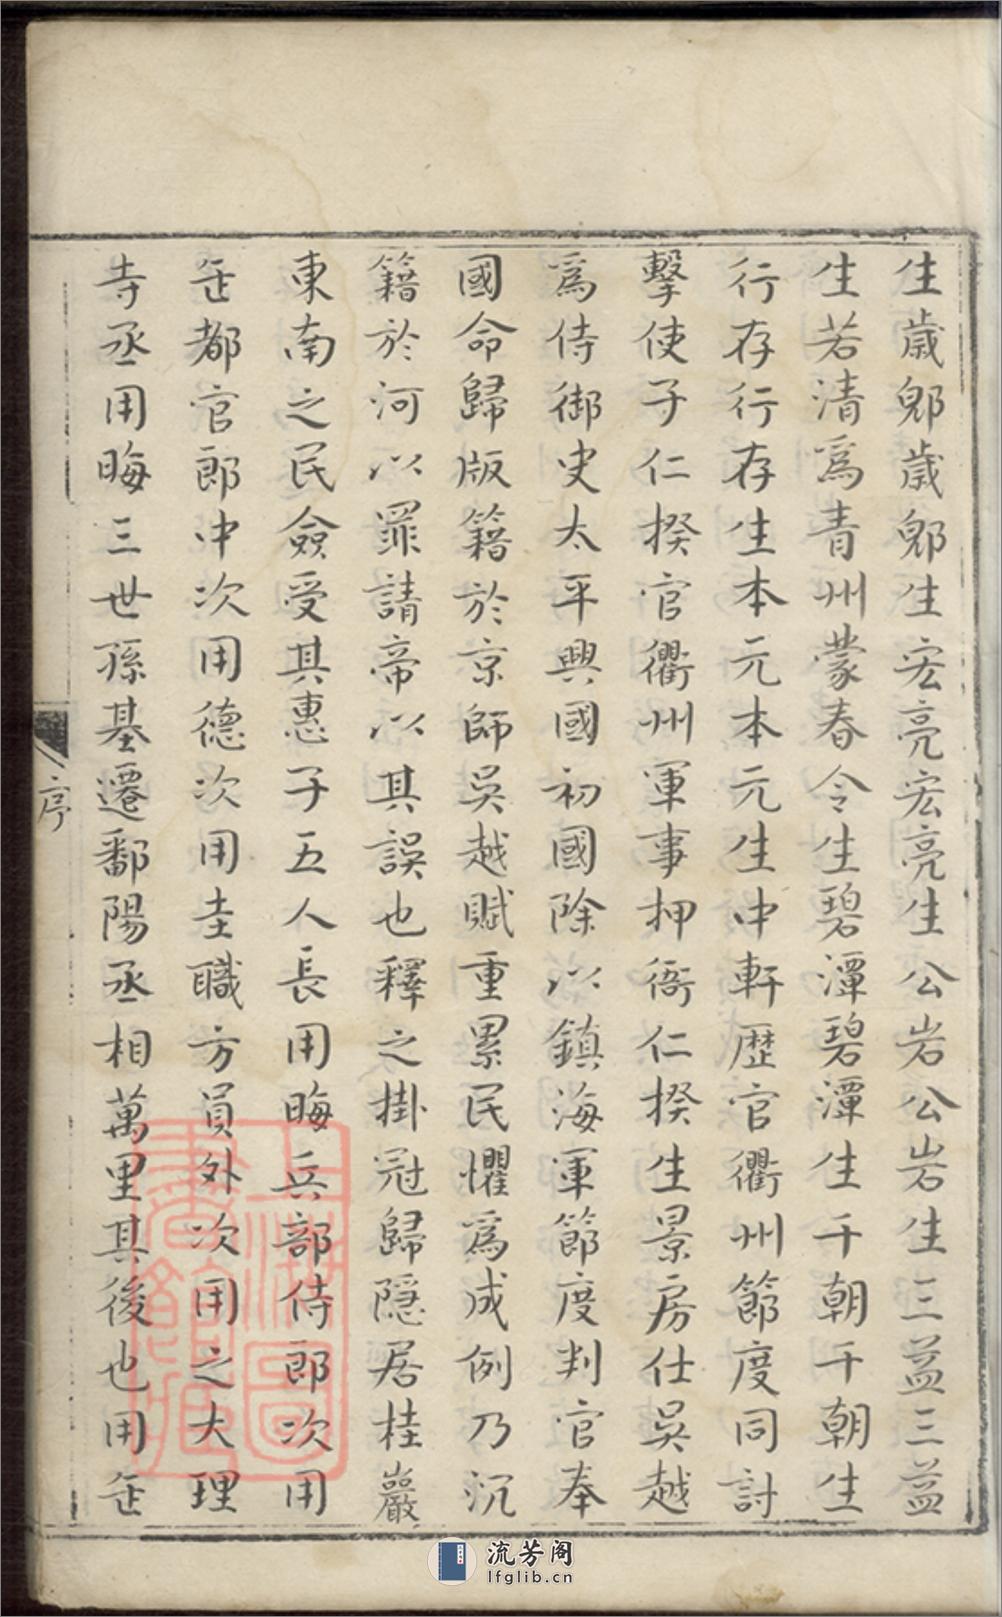 生歲郧歲郧生宏亮宏亮生公岩公岩生三益三益
生若清爲青州蒙春令生碧潭碧潭生千朝千朝生
行存行存生本元本元生中軒歷官衢州節度同討
擊使子仁揆官衢州軍事押衙仁揆生景房仕吳越
爲侍御史太平興國初國除以鎮海軍節度判官奉
國命歸版籍於京師吳越賦重累民懼爲成例乃沉
籍於河以罪請帝以其誤也釋之掛冠歸隱居桂巖
東南之民僉受其惠子五人長用晦兵部侍郎次用
缶都官郎中次用德次用圭職方員外次用之大理
寺丞用晦三世孫基遷鄱陽丞相萬里其後也用缶
序
上海圖書館藏
流芳阁
lfglib.cn